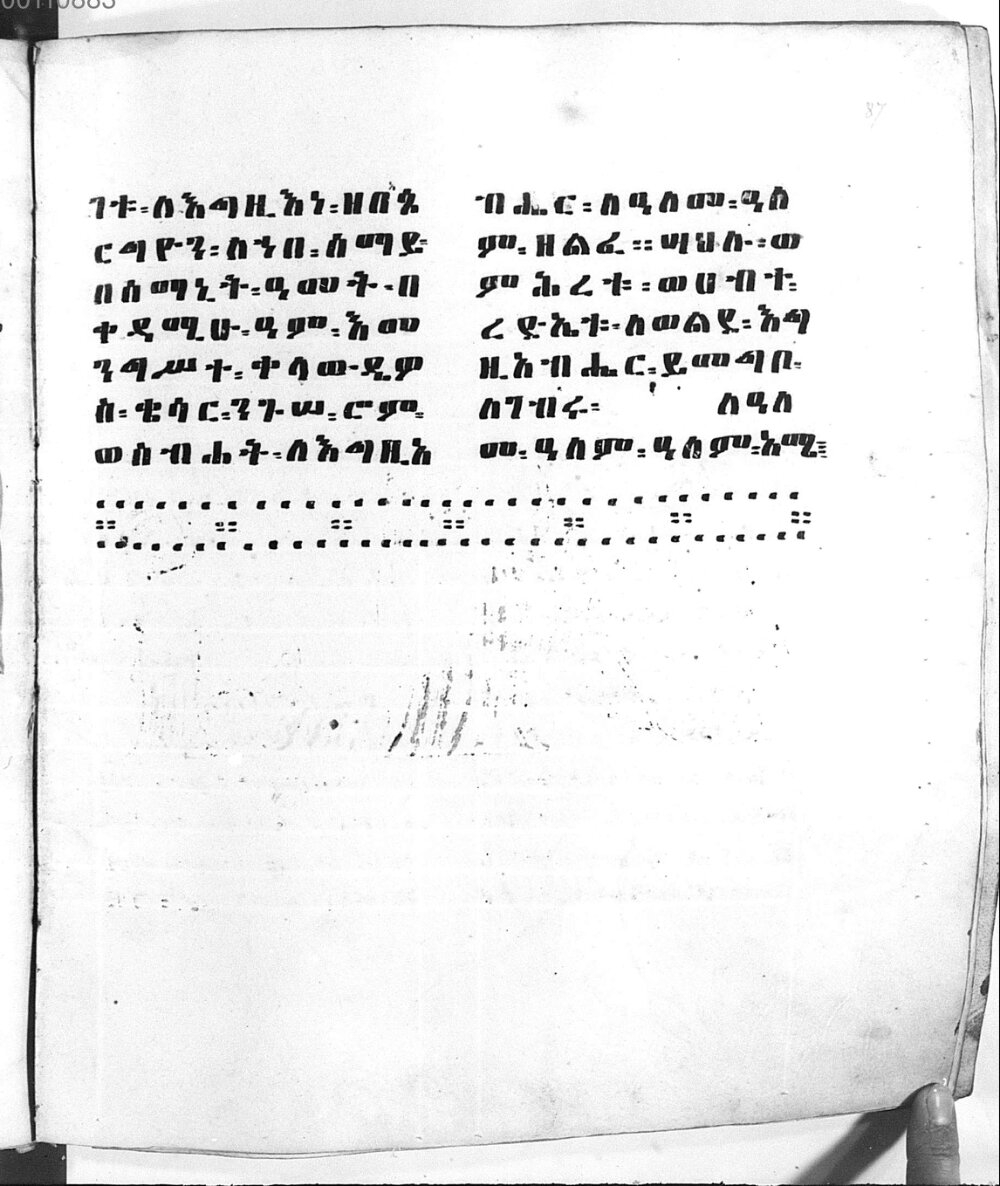 ገቱ፡ለእግዚእነ፡ዘበጴ
ርግዮን፡ስኅበ፡ሰማይ፡
በሰማኒት፡ዓመት፡በ
ቀዳሚሁ፡ዓም፡እመ
ንግሥተ፡ቀላውዲዎ
ስ፡ቄሳር፡ንጉሠ፡ሮም፡
ወስብሐት፡ለእግዚአ
ብሔር፡ለዓለመ፡ዓለ
ም፡ዘልፈ፡፡ሣህሉ፡ወ
ምሕረቱ፡ወሀብተ፡
ረድኤቱ፡ለወልደ፡እግ
ዚአብሔር፡ይመግበ፡
ለገብሩ፡ ለዓለ
መ፡ዓለም፡ዓለም፡አሜ፡
87